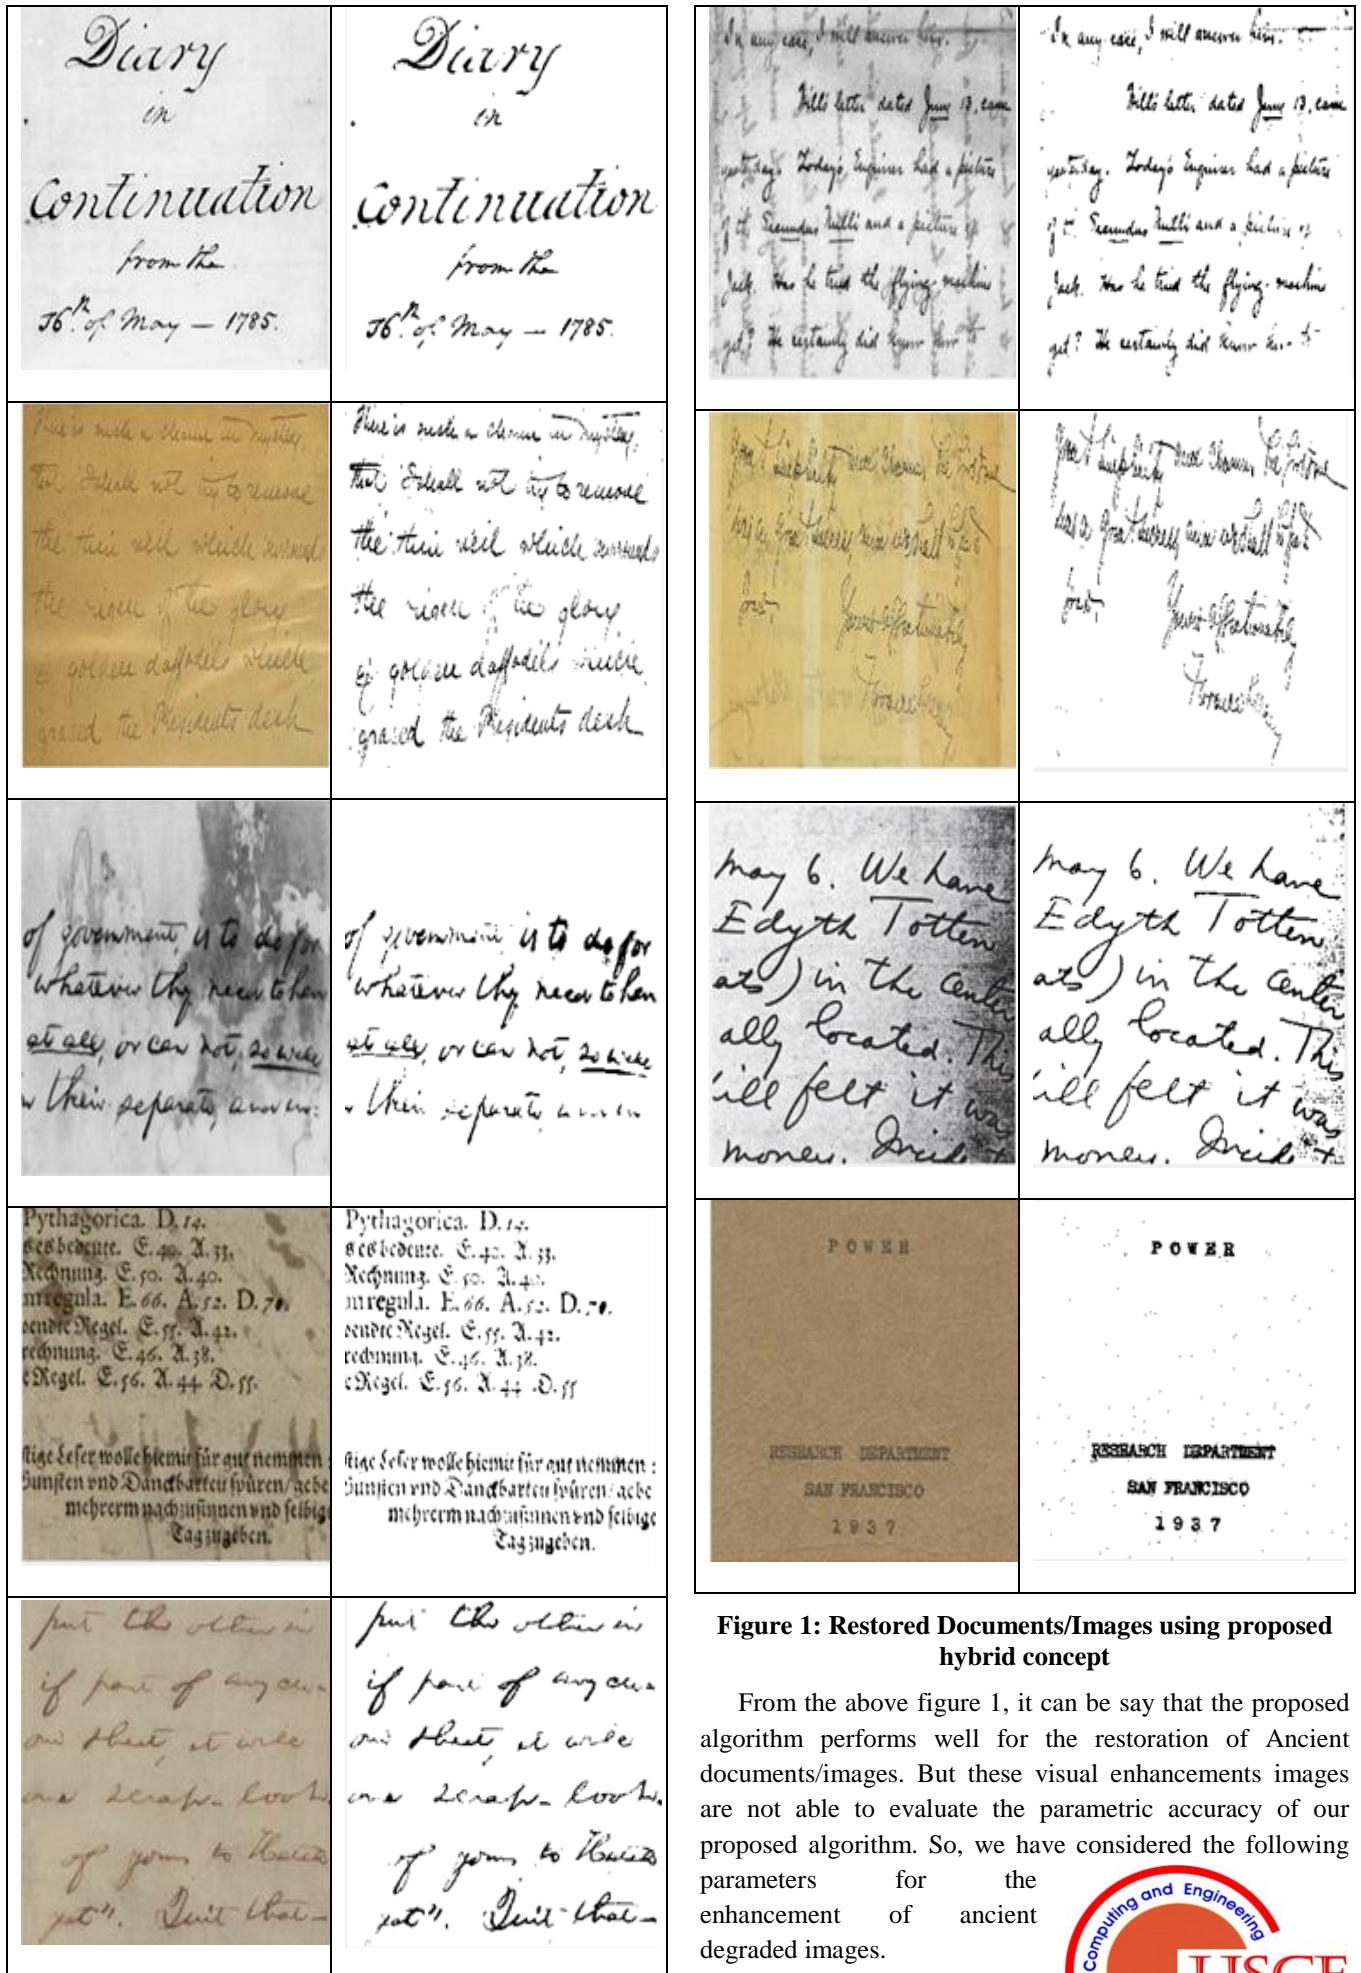 Diary
in
Continuation
from the
16.th of May — 1785.
Diary
in
Continuation
from the
16.th of May — 1785.
There is such a charm in mystery,
that I shall not try to remove
the thin veil which surrounds
the vision of the glory
of golden daffodils which
graced the Presidents desk
There is such a charm in mystery,
that I shall not try to remove
the thin veil which surrounds
the vision of the glory
of golden daffodils which
graced the Presidents desk
of government, is to do for
whatever they need to have
at all, or can not, so well
their separate, and in
of government is to do for
whatever they need to have
at all, or can not, so well
their separate,
Pythagorica. D. 14.
s es bedeute. E. 40. A. 33.
Rechnung. E. 50. A. 40.
mregula. E. 66. A. 52. D. 70.
oendte Regel. E. 55. A. 42.
rechnung. E. 46. A. 38.
e Regel. E. 56. A. 44. D. 55.
stige Leser wolle hiemit für gut nemmen :
Gunsten vnd Danckbarkeit spüren/ gebe
mehrerm nachzusinnen vnd selbige
Tag zugeben.
Pythagorica. D. 14.
s es bedeute. E. 42. A. 33.
Rechnung. E. 50. A. 40.
mregula. E. 66. A. 52. D. 70.
oendte Regel. E. 55. A. 42.
rechnung. E. 46. A. 38.
e Regel. E. 56. A. 44 . D. 55
stige Leser wolle hiemit für gut nemmen :
Gunsten vnd Danckbarkeit spüren/ gebe
mehrerm nachzusinnen vnd selbige
Tag zugeben.
put the other in
if part of any
our sheet, it will
one scrap- look
of yours to
yet". Quit that-
put the other in
if part of any
our sheet, it will
one scrap- look
of yours to
yet". Quit that-
In any case, I will answer him.
Will's letter dated June 13, came
yesterday. Today's Enquirer had a picture
of the Secundus Nulli and a picture of
Jack. Has he tried the flying-machine
yet? He certainly did know how to
In any case, I will answer him.
Will's letter dated June 13, came
yesterday. Today's Enquirer had a picture
of the Secundus Nulli and a picture of
Jack. Has he tried the flying-machine
yet? He certainly did know how to
was a great success
Yours affectionately
was a great success
Yours affectionately
May 6. We have
Edyth Totten
ats) in the Center
ally located. This
ill felt it was
money.
May 6. We have
Edyth Totten
ats) in the Center
ally located. This
ill felt it was
money.
POWER
RESEARCH DEPARTMENT
SAN FRANCISCO
1937
POWER
RESEARCH DEPARTMENT
SAN FRANCISCO
1937
Figure 1: Restored Documents/Images using proposed
hybrid concept
From the above figure 1, it can be say that the proposed
algorithm performs well for the restoration of Ancient
documents/images. But these visual enhancements images
are not able to evaluate the parametric accuracy of our
proposed algorithm. So, we have considered the following
parameters for the
enhancement of ancient
degraded images.
Computing and Engineering
IJSCE